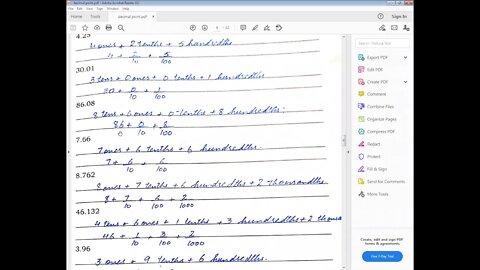 decimal point.pdf - Adobe Acrobat Reader DC
File Edit View Window Help
Home Tools decimal point.pdf
Sign In
4.25
4 ones + 2 tenths + 5 hundredths
4 + 2 + 5
10 100
30.01
3 tens + 0 ones + 0 tenths + 1 hundredths
30 + 0 + 1
10 100
86.08
8 tens + 6 ones + 0 tenths + 8 hundredths
86 + 0 + 8
0 10 100
7.66
7 ones + 6 tenths + 6 hundredths
7 + 6 + 6
10 100
8.762
8 ones + 7 tenths + 6 hundredths + 2 thousandths
8 + 7 + 6 + 2
10 100 1000
46.132
4 tens + 6 ones + 1 tenths + 3 hundredths + 2 thousa
46 + 1 + 3 + 2
10 100 1000
3.96
3 ones + 9 tenths + 6 hundredths.
Export PDF
Edit PDF
Create PDF
Comment
Combine Files
Organize Pages
Compress PDF
Redact
Protect
Fill & Sign
Send for Comments
More Tools
Create, edit and sign PDF
forms & agreements